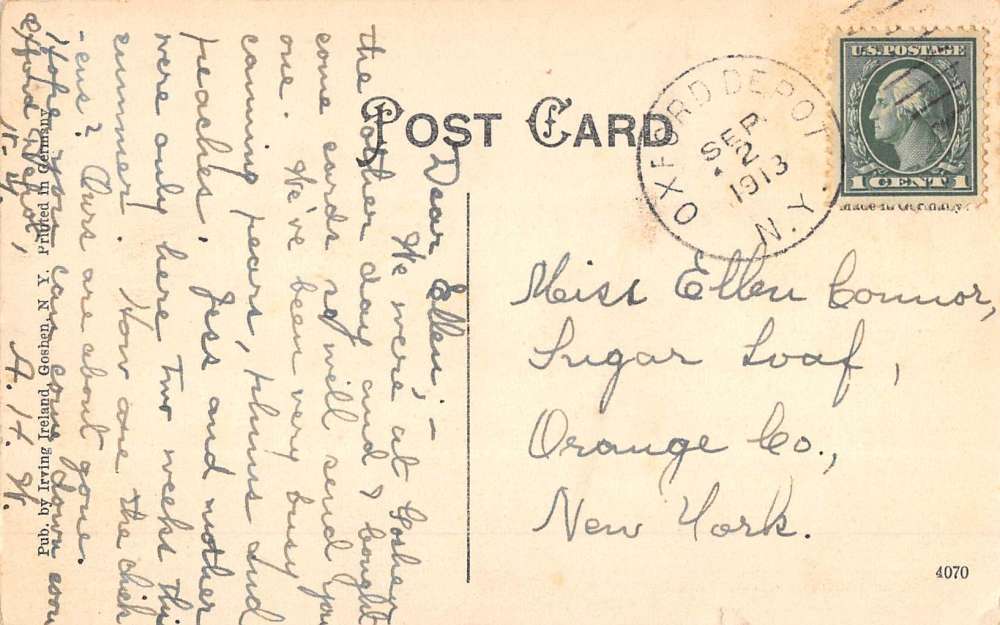 POST CARD
OXFORD DEPOT
SEP
2
1913
N.Y.
U.S. POSTAGE
1 CENT 1
Dear Ellen;-
We were at Goshen
the other day and I bought
some cards so will send you
one. We've been very busy
canning pears, plums and
peaches. Jess and mother
were only here two weeks this
summer. How are the chick
-ens? Ours are about gone.
Hope you can come down soon
A. H. W.
Oxford Depot,
N. Y.
Miss Ellen Connor,
Sugar Loaf,
Orange Co.,
New York.
Pub. by Irving Ireland, Goshen, N. Y. Printed in Germany
4070